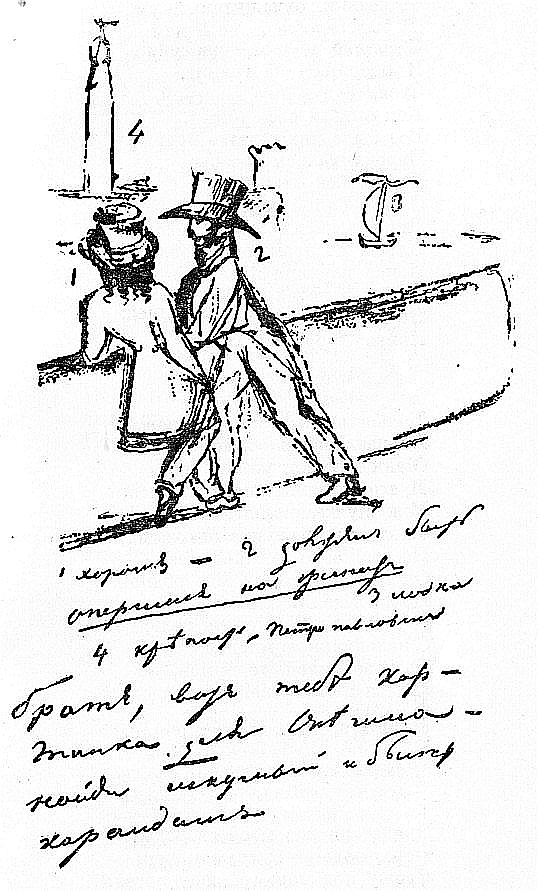 4
3
2
1
1 хорошъ — 2 долженъ быть
опершися на гранитъ
3 лодка
4 крѣпость, Петропавловская
братъ, вотъ тебѣ кар-
тинка для Онѣгина —
найди искусный и быстрый
карандашъ